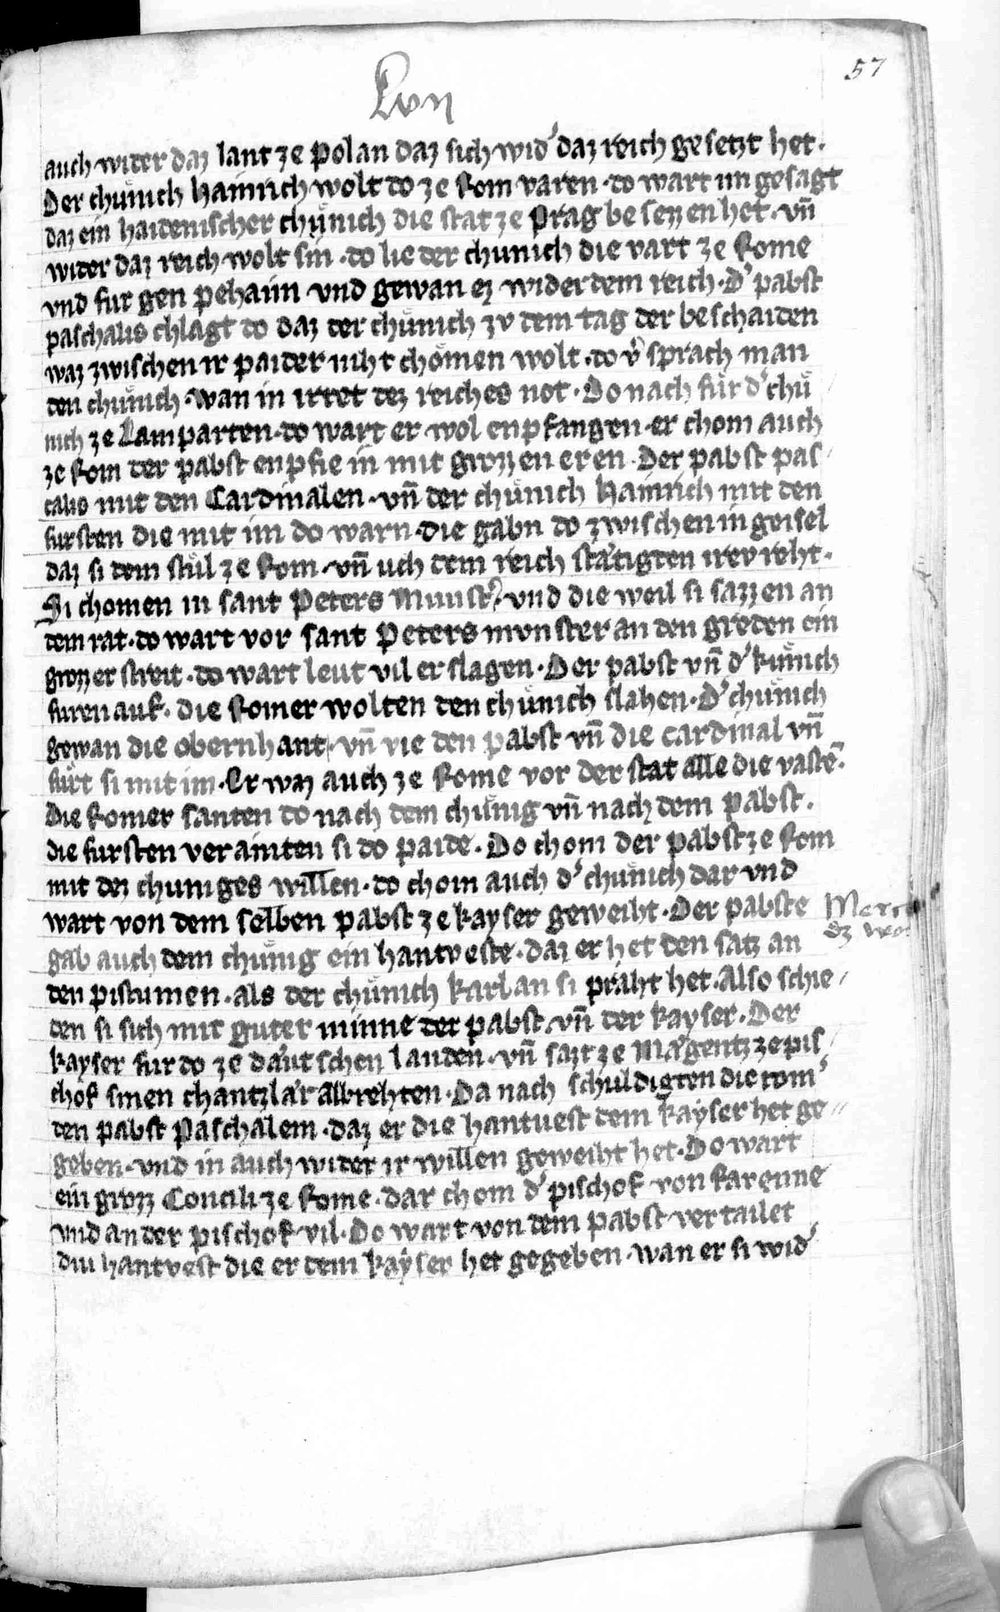 57
Lvii
auch wider daz lant ze Polan daz sich wid' daz reich gesetzt het.
Der chuͤnich Hainrich wolt do ze Rom varen · do wart im gesagt
daz ein haidenischer chuͤnich die stat ze Prag besezzen het · vn̄
wider daz reich wolt sin · do lie der chunich die vart ze Rome
vnd fur gen Pehaim vnd gewan ez wider dem reich · D' pabst
paschalis chlagt do daz der chuͤnich zv dem tag der beschaiden
waz zwischen ir paider niht choͤmen wolt · do v'sprach man
den chuͤnich · wan in irret dez reiches not · Do nach fuͤr d' chuͤ
nich ze Lamparten · do wart er wol enpfangen · er chom auch
ze Rom der pabst enpfie in mit grozzen eren · Der pabst pas
calis mit den Cardinalen · vn̄ der chuͤnich Hainrich mit den
fursten die mit im do warn · die gabn do zwischen in geisel
daz si dem stuͤl ze Rom · vn̄ uch dem reich staͤtigten irev reht ·
Si chomen in sant Peters Munst' · vnd die weil si sazzen an
dem rat · do wart vor sant Peters mvnster an den greden ein
grozzer streit · do wart leut vil erslagen · Der pabst vn̄ d' kuͤnich
furen auf · die Romer wolten den chuͤnich slahen · D' chuͤnich
gewan die obernhant · vn̄ vie den pabst vn̄ die cardinal vn̄
fuͤrt si mit im · Er waz auch ze Rome vor der stat alle die vastē ·
Die Romer santen do nach dem chuͤnig vn̄ nach dem Pabst ·
die fursten verainten si do paide · Do chom der pabst ze Rom
mit dez chuniges willen · do chom auch d' chuͤnich dar vnd
wart von dem selben pabst ze kayser geweiht · Der pabste
gab auch dem chuͤnig ein hantveste · daz er het den satz an
den pistumen · als der chuͤnich karl an si praht het · Also schie
den si sich mit guter minne der pabst · vn̄ der kayser · Der
kayser fur do ze daͤutschen landen · vn̄ sazt ze Maͤgentz ze pis
chof sinen chantzlaͤr albrehten · Da nach schuldigten die rom'
den pabst Paschalem · daz er die hantuest dem kayser het ge
geben · vnd in auch wider ir willen geweiht het · Do wart
ein grozz Concili ze Rome · dar chom d' pischof von Rarenne
vnd ander pischof vil · Do wart von dem pabst vertailet
diu hantvest die er dem kayser het gegeben · wan er si wid'